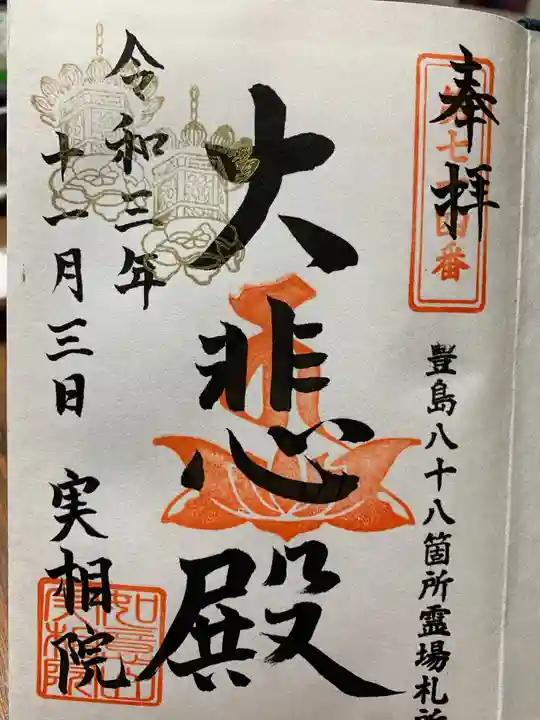 奉拝
七十四番
豊島八十八箇所霊場札所
大悲殿
令和三年
十一月三日
実相院